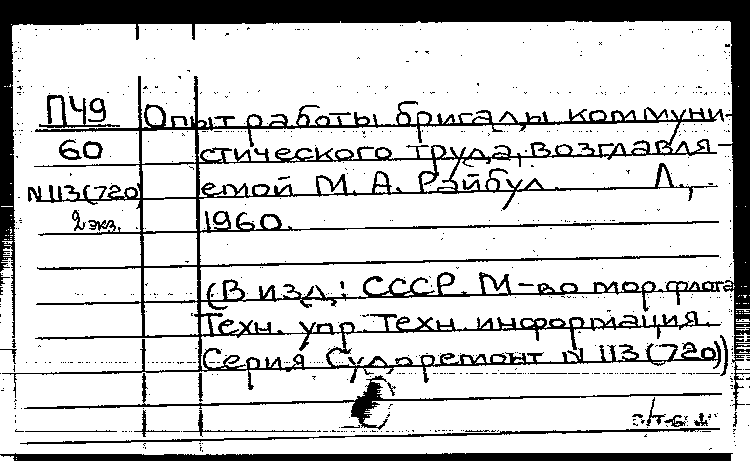 П49 Опыт работы бригады коммуни-
60 стического труда, возглавля-
N113(720) емой М. А. Райбул. Л.,
2 экз. 1960.
(В изд.: СССР. М-во мор. флота
Техн. упр. Техн. информация.
Серия Судоремонт N 113(720))